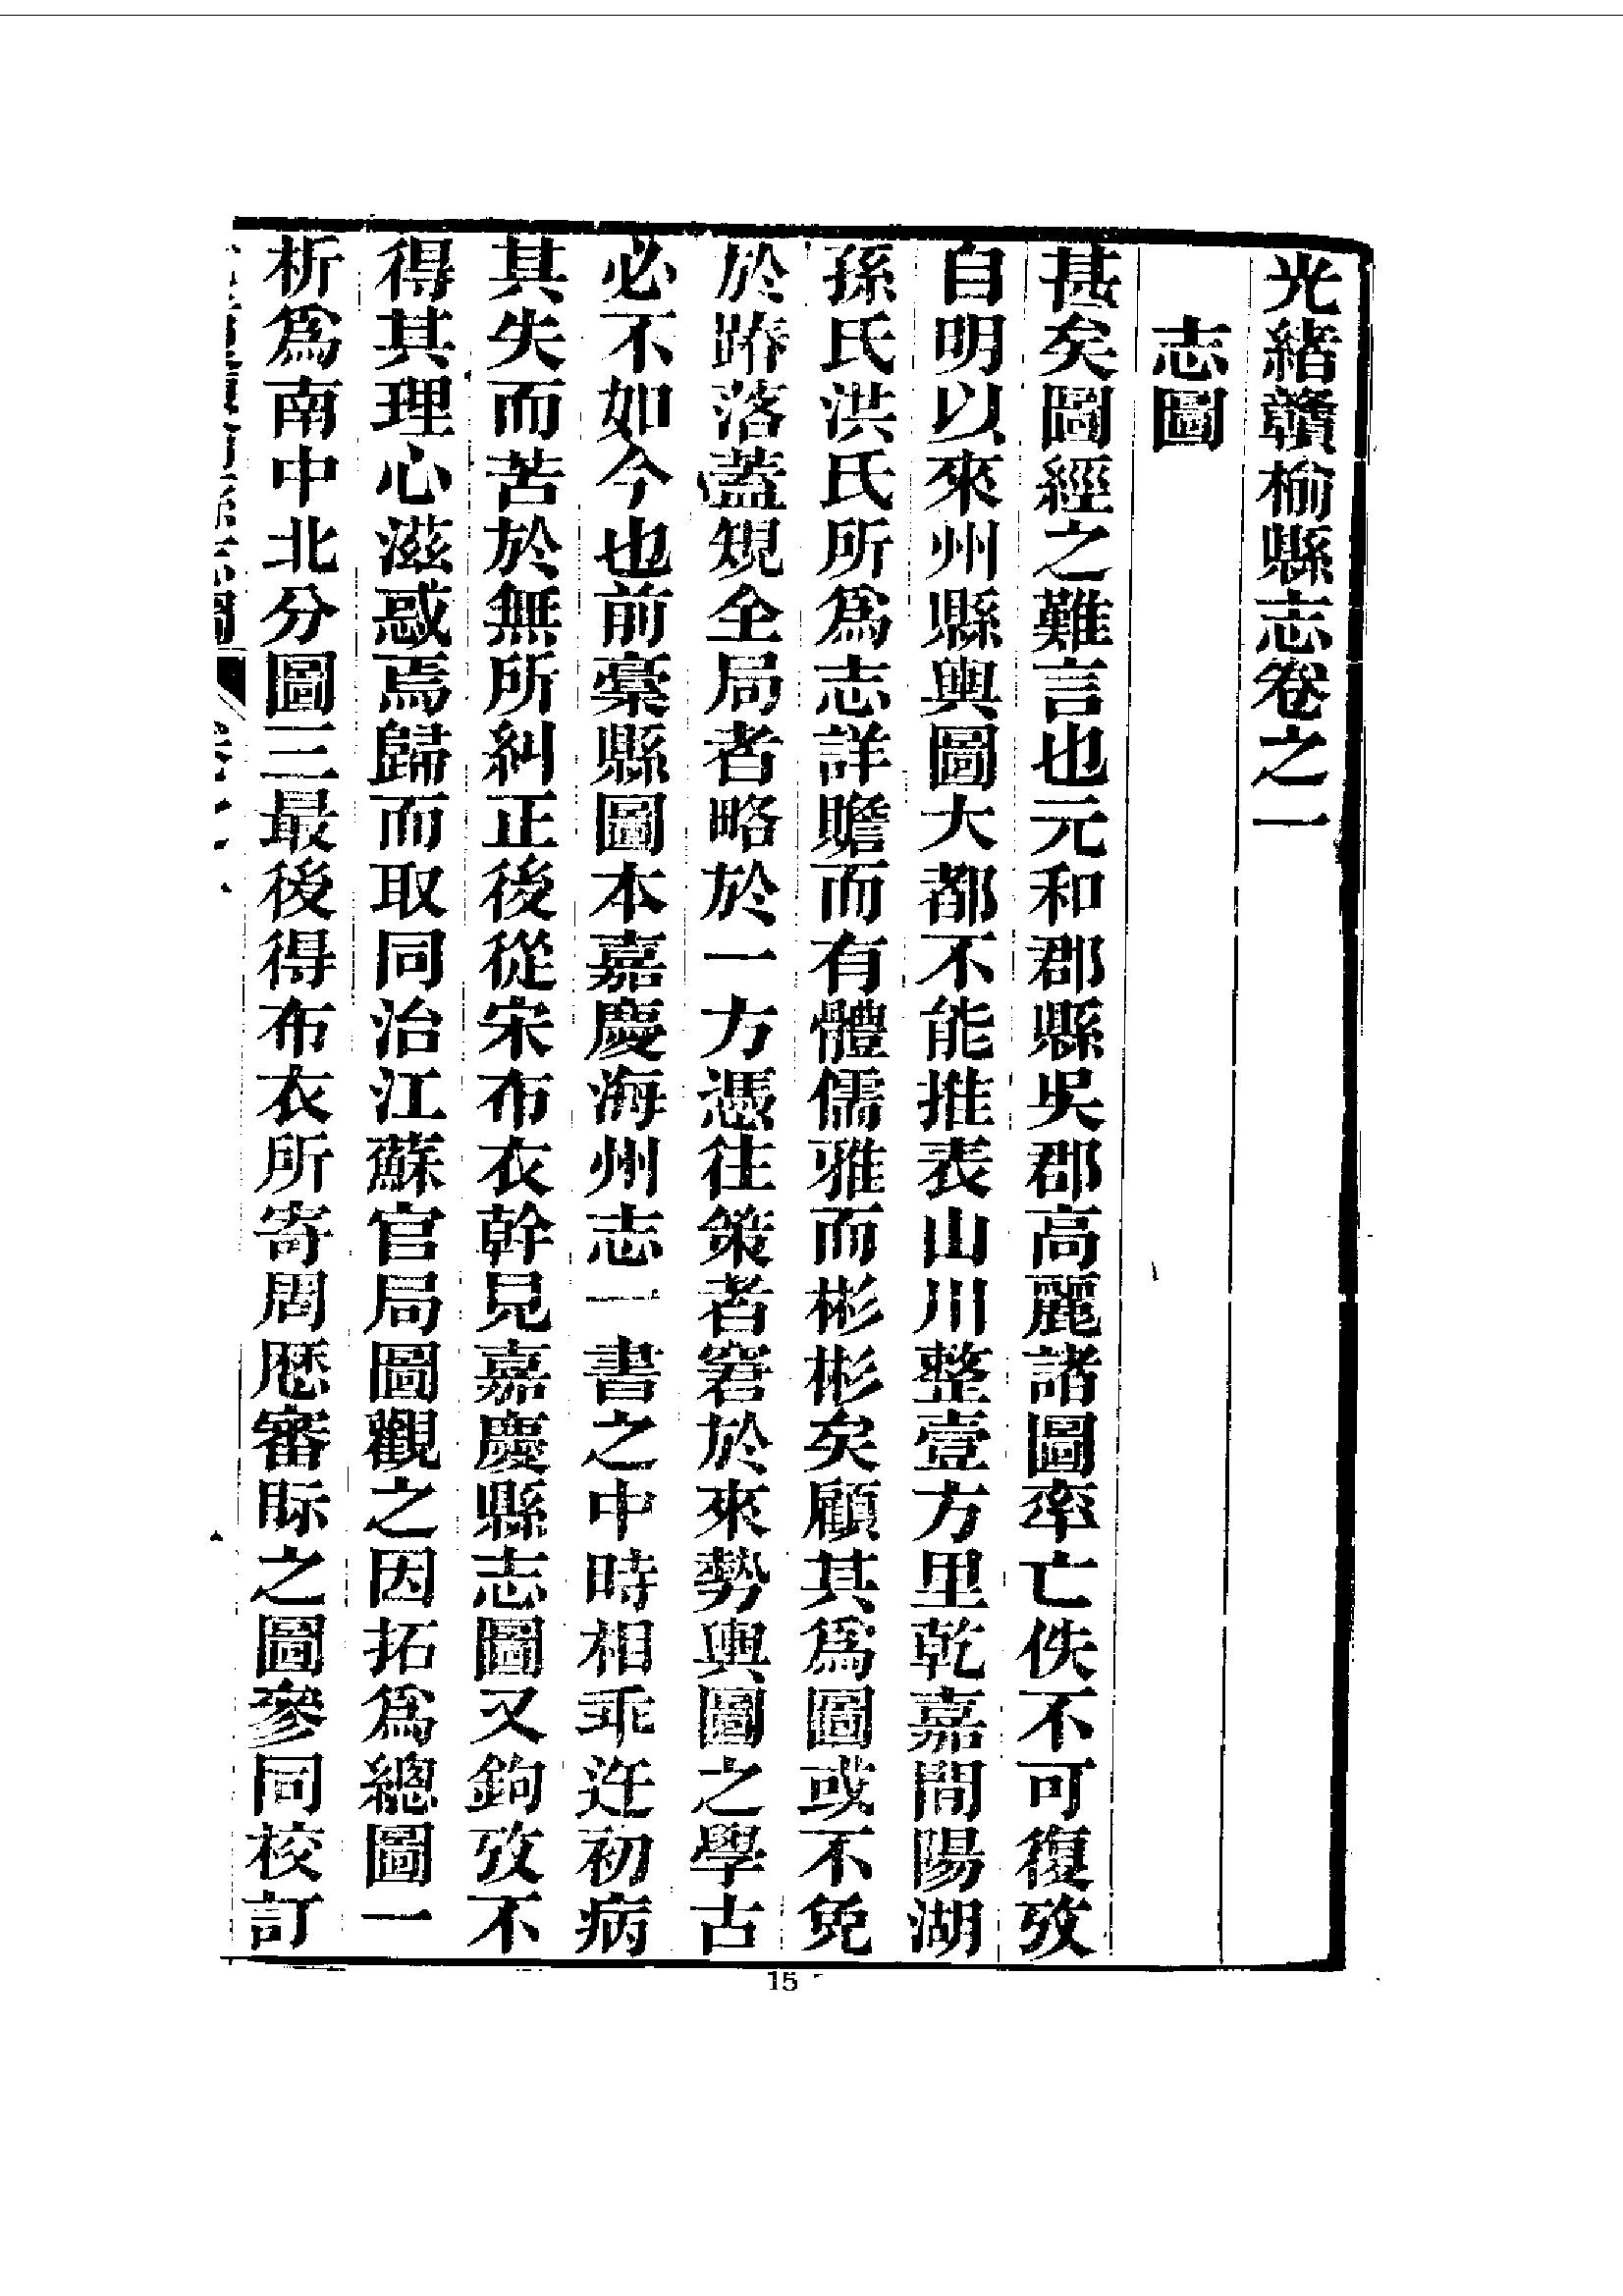 光緒贛榆縣志卷之一
志圖
甚矣圖經之難言也元和郡縣吳郡高麗諸圖率亡佚不可復攷
自明以來州縣輿圖大都不能推表山川整壹方里乾嘉間陽湖
孫氏洪氏所爲志詳贍而有體儒雅而彬彬矣顧其爲圖或不免
於踳落蓋規全局者略於一方憑往策者窘於來勢輿圖之學古
必不如今也前稾縣圖本嘉慶海州志一書之中時相乖迕初病
其失而苦於無所糾正後從宋布衣幹見嘉慶縣志圖又鉤攷不
得其理心滋惑焉歸而取同治江蘇官局圖觀之因拓爲總圖一
析爲南中北分圖三最後得布衣所寄周厯審眎之圖參同校訂
15